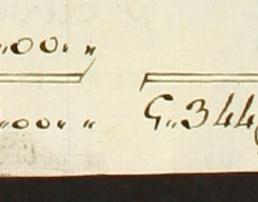 „00„ „
„00„ „ 5„344